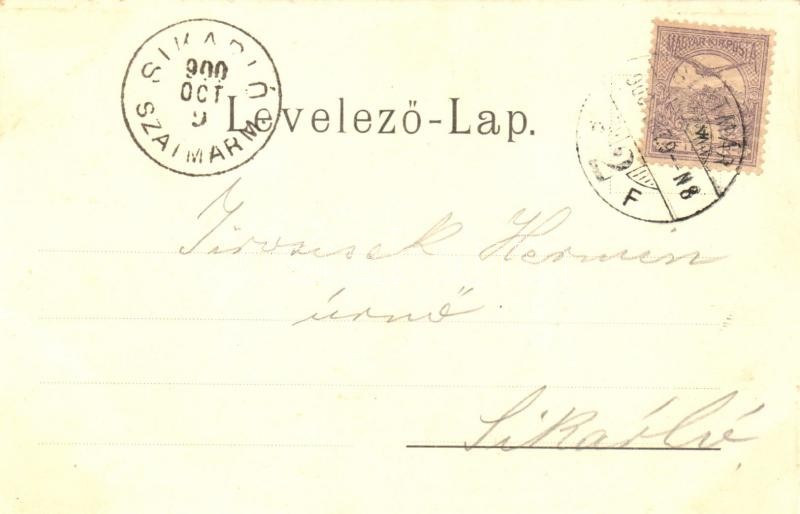 SIKARLÓ
900
OCT
9
SZATMÁRM
Levelező-Lap.
MAGYAR·KIR·POSTA
F
N8
Hermin
úrnő
Sikárló